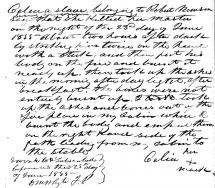 Celia a slave belonging to Robert Newsom
says that she killed her master
on the night of the 23d day of June
1855 about two hours after dark
by striking him twice on the head
with a stick, and then put his
body on the fire and burnt it
nearly up, then took up the ashes
in the morning after day light, after
breakfast, the bones were not
entirely burnt up I took up
the ashes and bones out of
fire place in my Cabin where I
burnt the body and emptied them
on the right hand side of the
path leading from my cabin to
the stable
Sworn to and Subscribed
before me this 25 day
of June 1855
J P
her
Celia X
mark